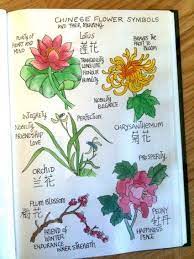 CHINESE FLOWER SYMBOLS
AND THEIR MEANING
PURITY OF
HEART AND
MIND
LOTUS
莲花
TRANQUILITY
LONG LIFE
HONOUR
HUMILITY
BRAVES THE
FROST TO
BLOOM
NOBILITY
ELEGANCE
CHRYSANTHEMUM
菊
INTEGRITY
NOBILITY
FRIENDSHIP
LOVE
PERFECTION
ORCHID
兰花
PROSPERITY
PLUM BLOSSOM
FRIEND OF
WINTER
ENDURANCE
INNER STRENGTH
PEONY
牡丹
HAPPINESS
PEACE